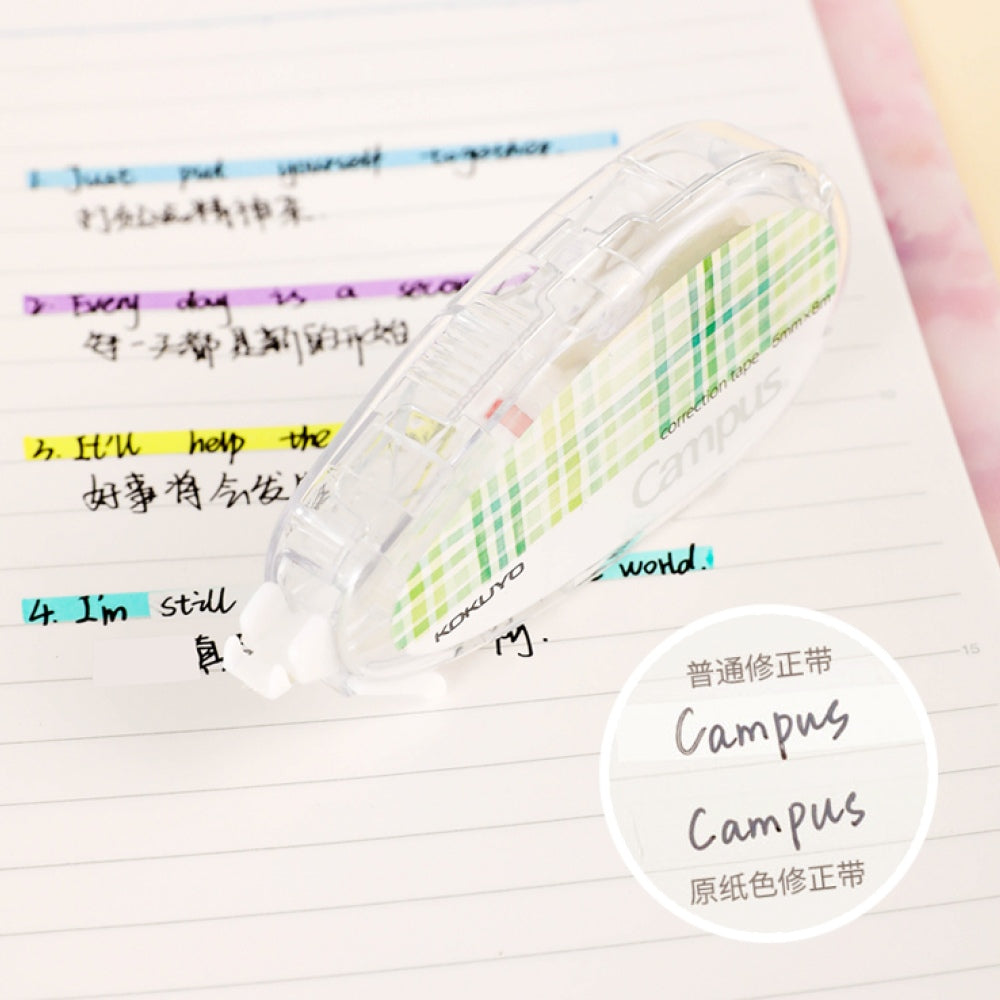 1. Just put yourself together.
打起你的精神来.
2. Every day is a
每一天都是新的开始
3. It'll help the
好事将会发
4. I'm still world.
真 my.
KOKUYO
Campus
correction tape 5mm×8m
15
普通修正带
Campus
Campus
原纸色修正带